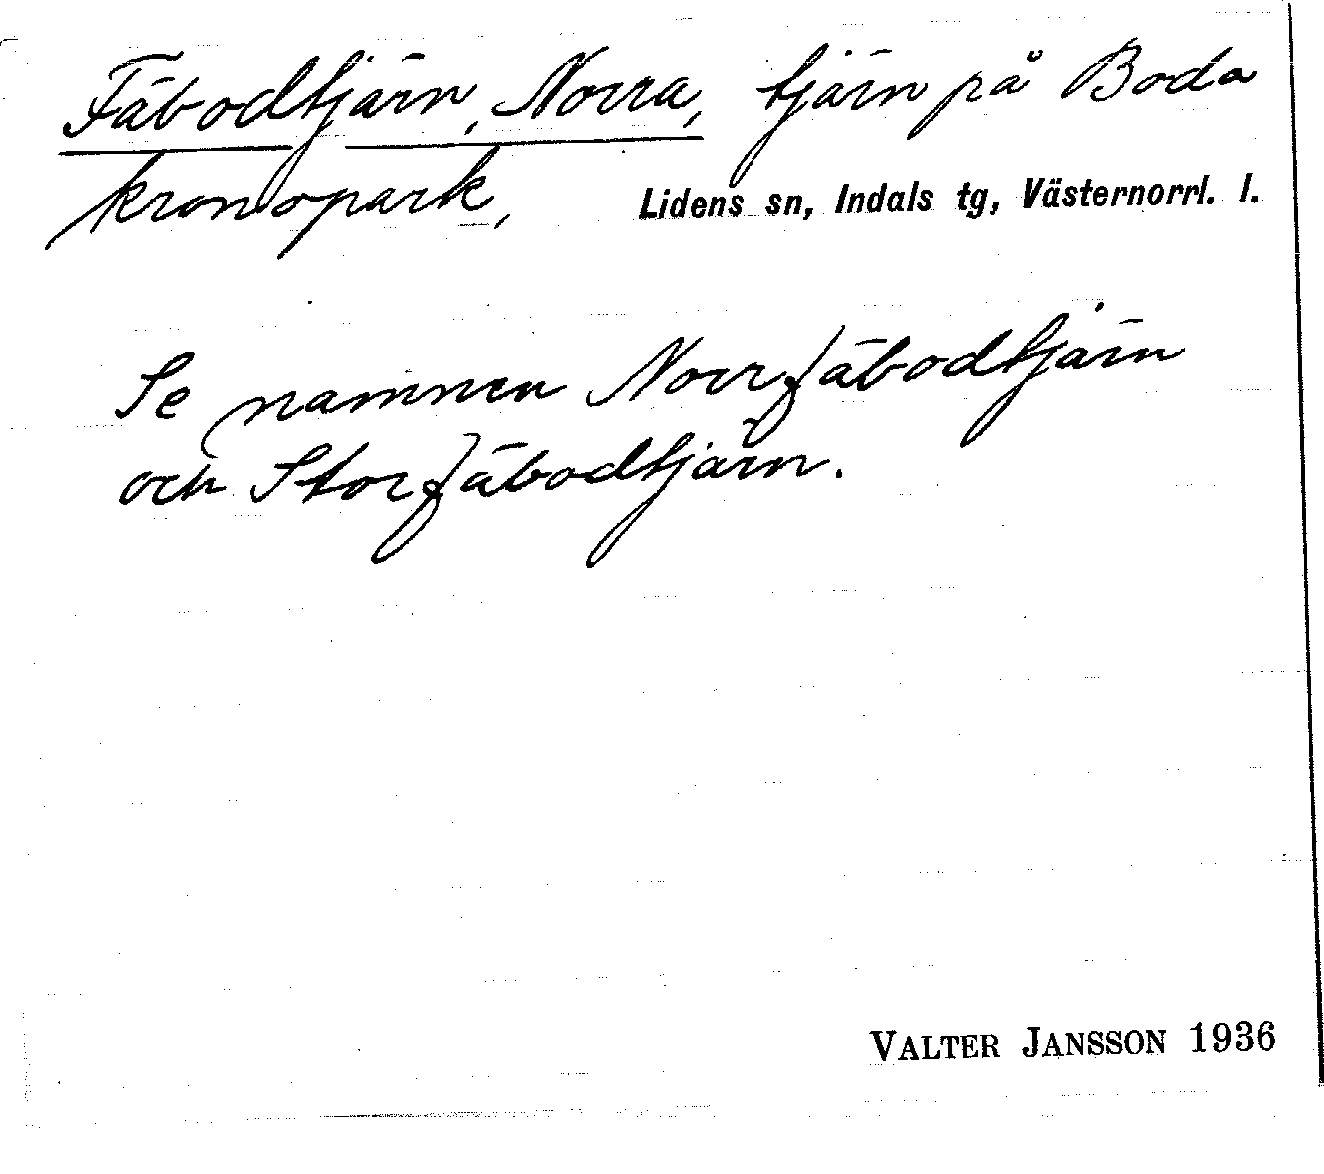 Fäbodtjärn, Norra, tjärn på Boda
kronopark, Lidens sn, Indals tg, Västernorrl. l.
Se namnen Norrfäbodtjärn
och Storfäbodtjärn.
VALTER JANSSON 1936